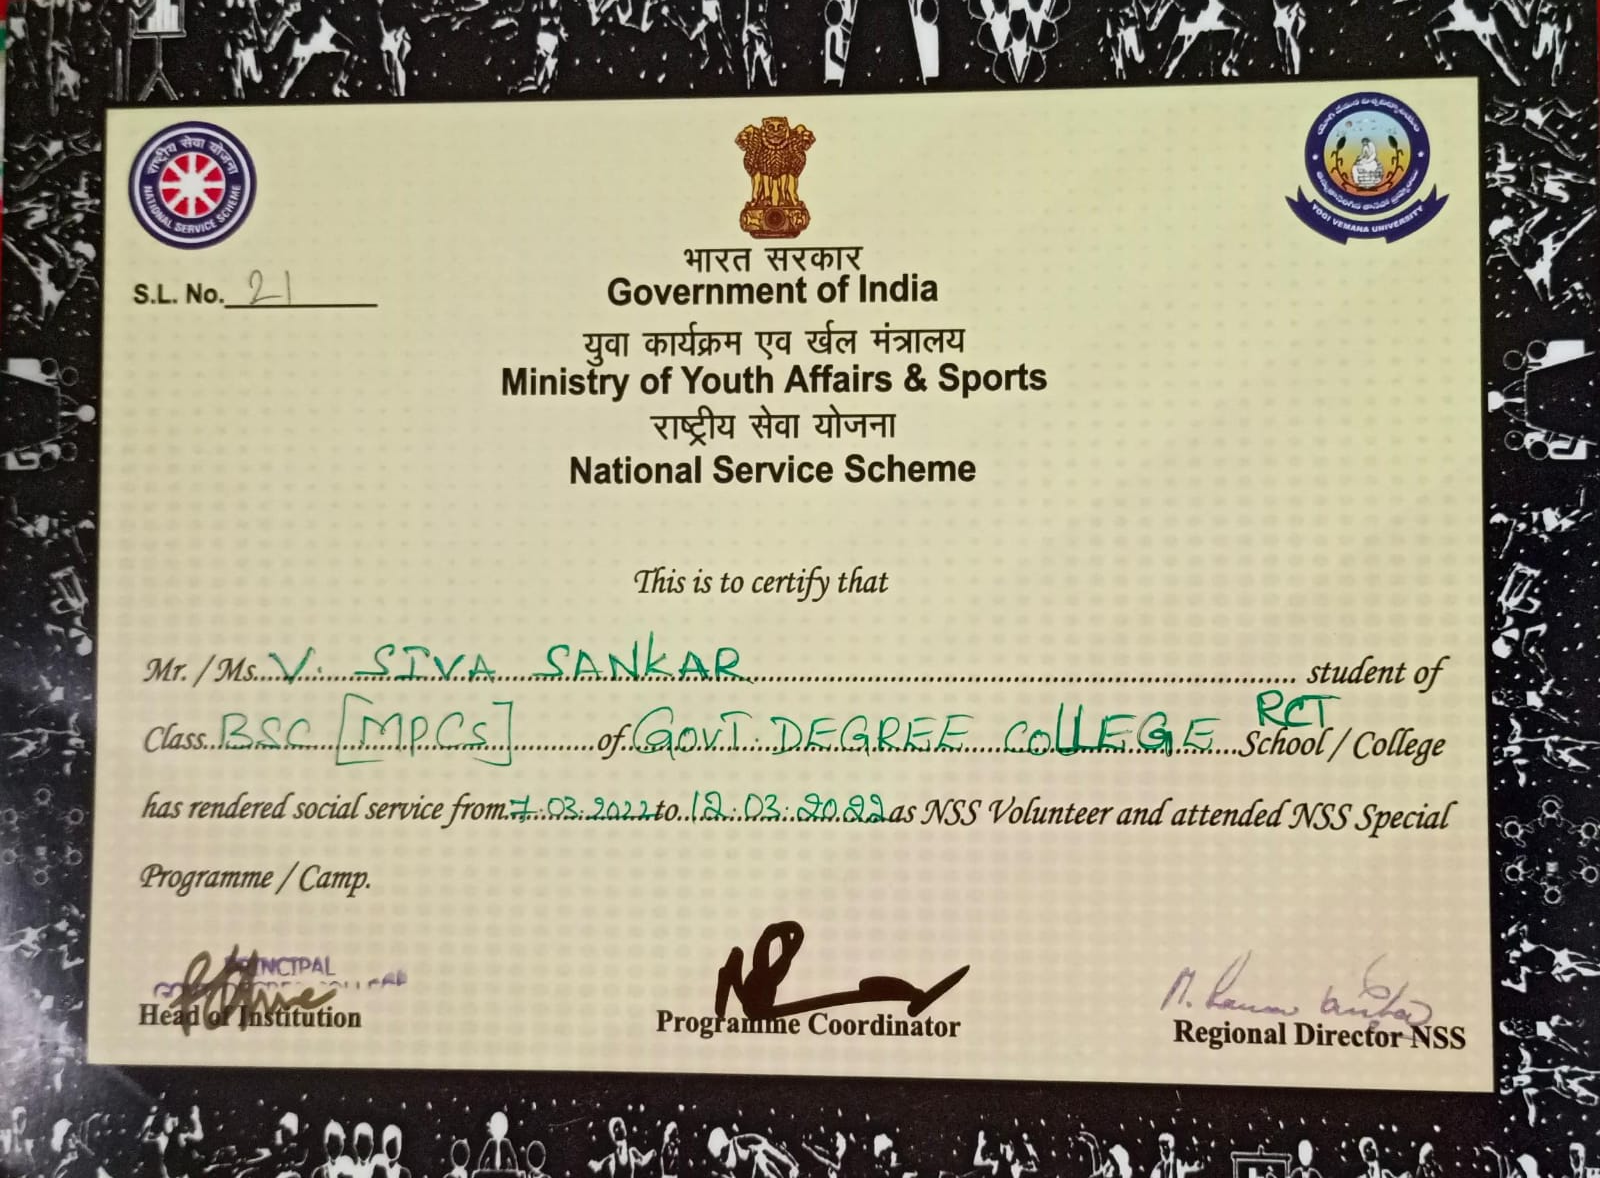 राष्ट्रीय सेवा योजना
NATIONAL SERVICE SCHEME
YOGI VEMANA UNIVERSITY
S.L. No. 21
भारत सरकार
Government of India
युवा कार्यक्रम एव र्खल मंत्रालय
Ministry of Youth Affairs & Sports
राष्ट्रीय सेवा योजना
National Service Scheme
This is to certify that
Mr. / Ms. V. SIVA SANKAR student of
Class BSC [MPCs] of GOVT. DEGREE COLLEGE RCT School / College
has rendered social service from 7.03.2022 to 12.03.2022 as NSS Volunteer and attended NSS Special
Programme / Camp.
PRINCIPAL
Head of Institution
Programme Coordinator
Regional Director NSS